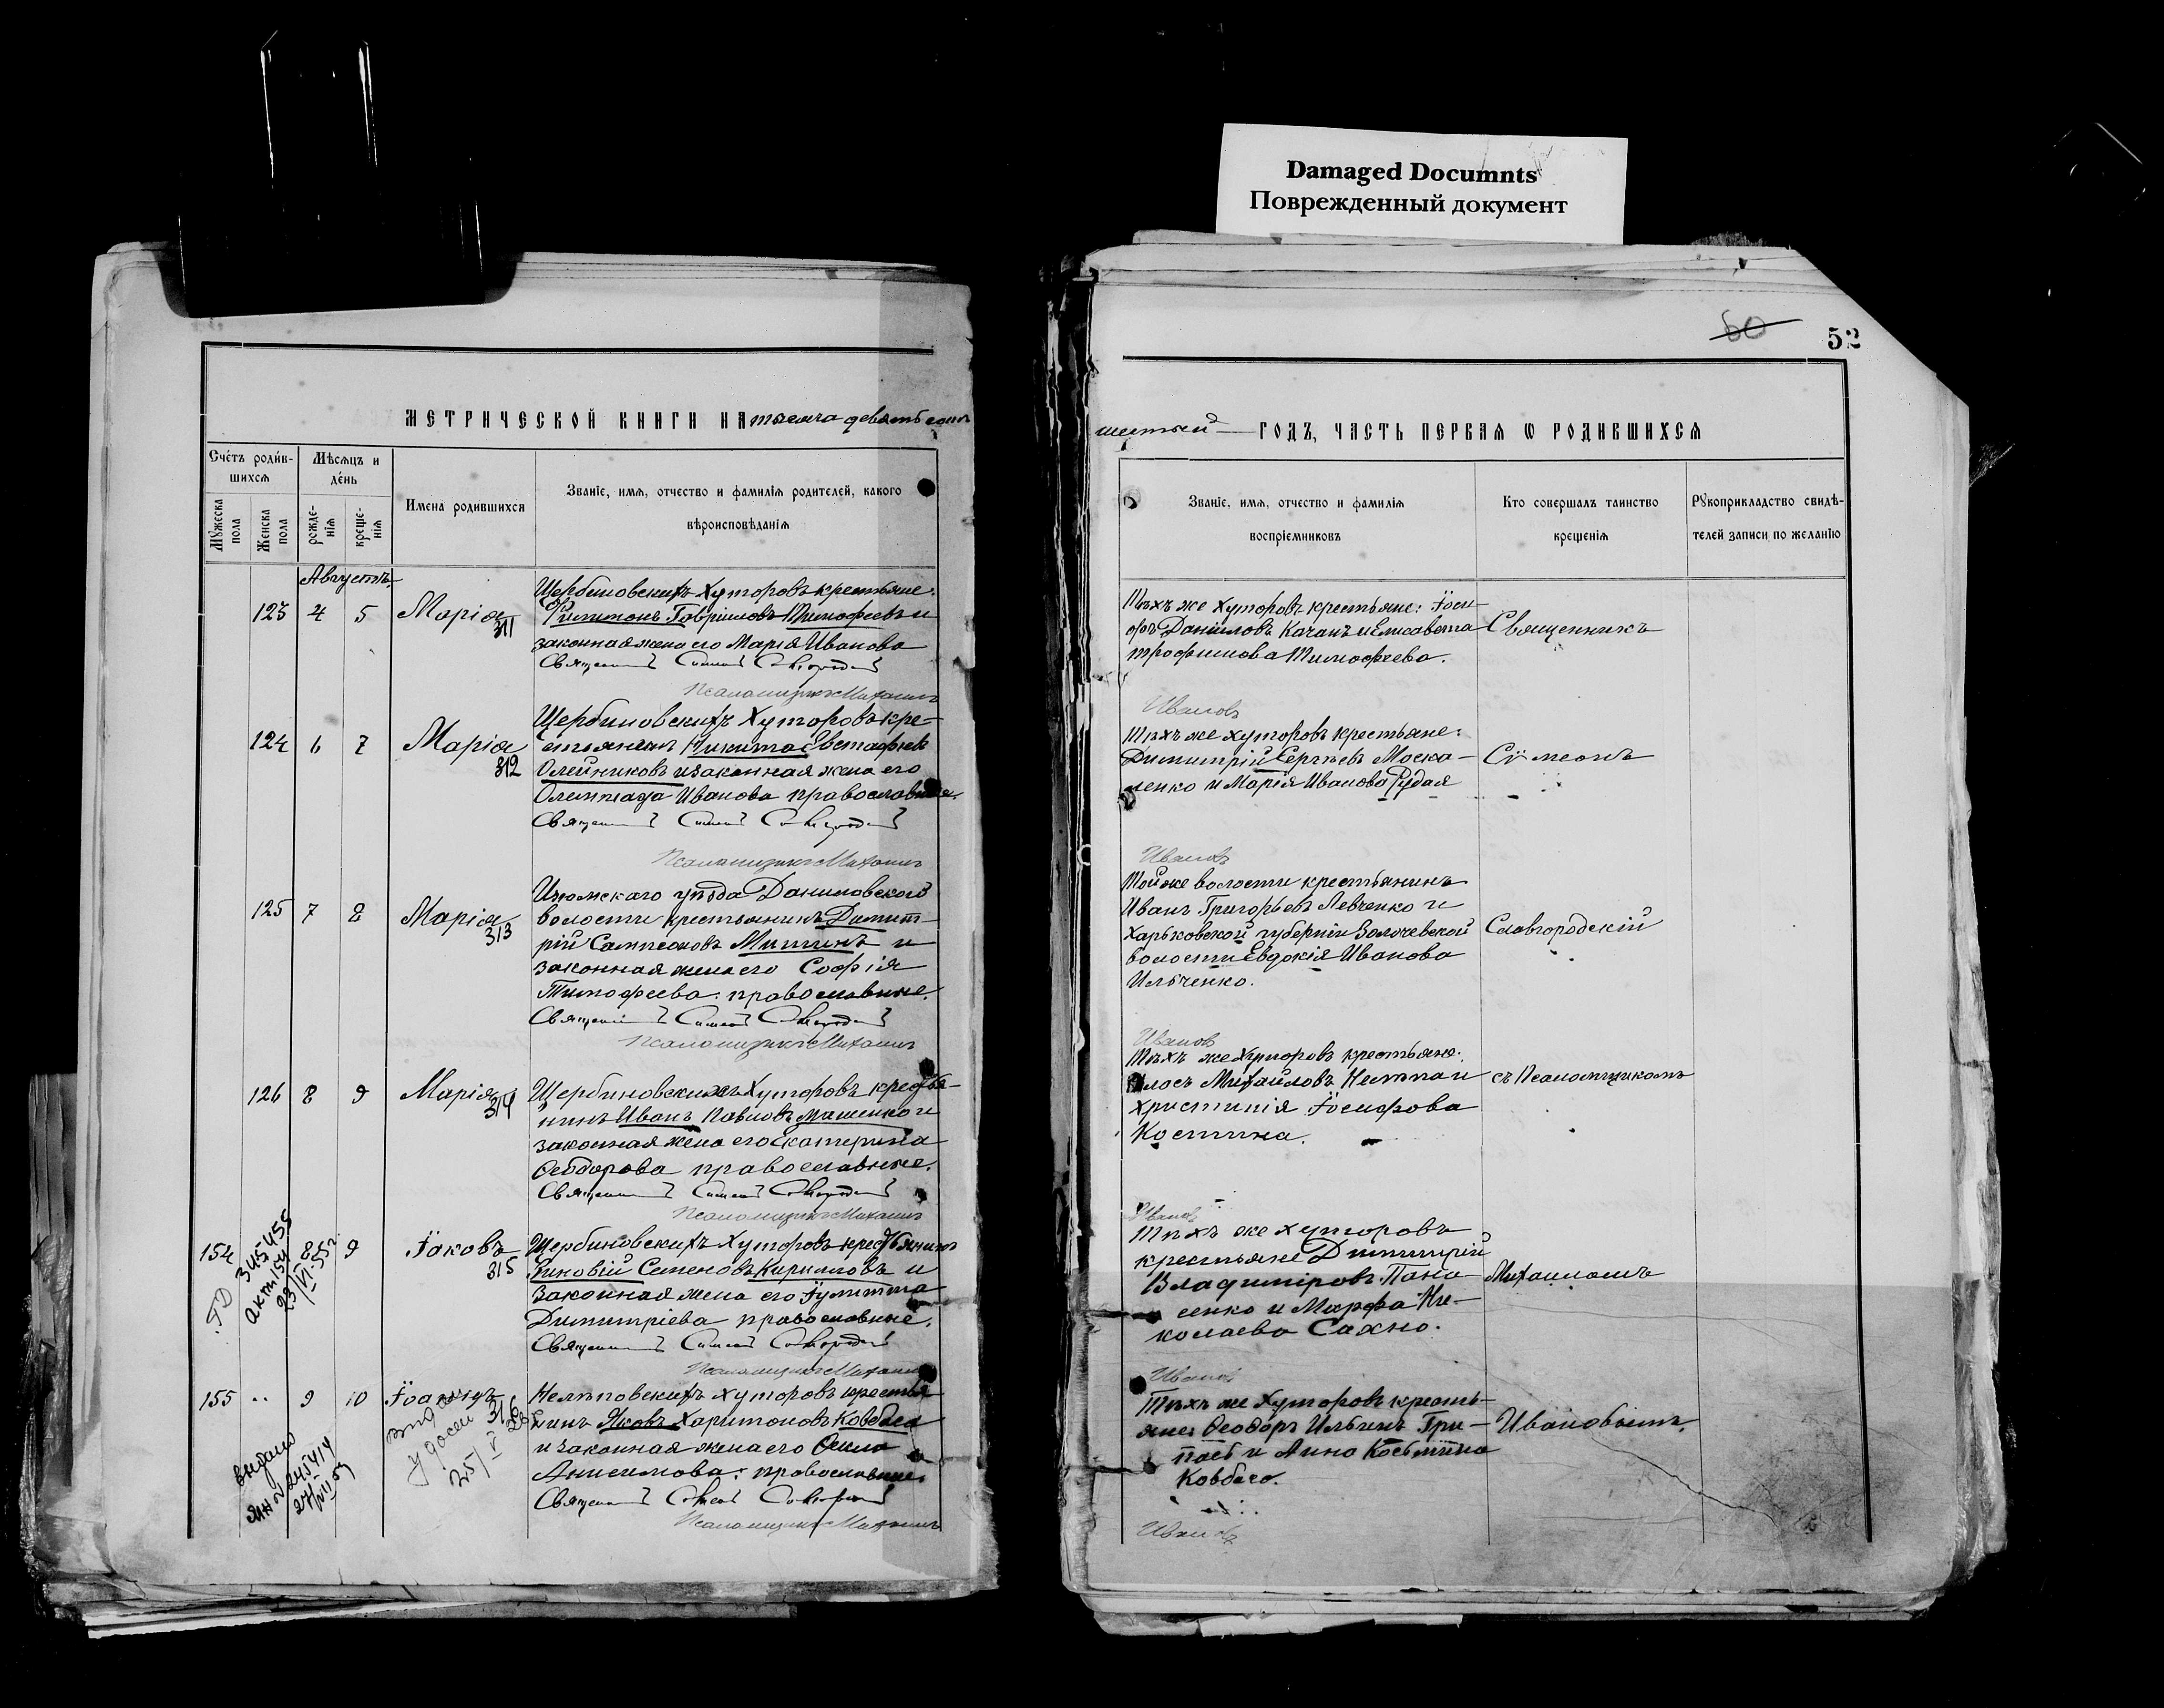 Damaged Documnts
Поврежденный документ
60
52
МЕТРИЧЕСКОЙ КНИГИ НА тысяча девятьсот
Счетъ родившихся
Мѣсяцъ и день
Имена родившихся
Званіе, имя, отчество и фамилія родителей, какого
вѣроисповѣданія
Мужеска пола
Женска пола
рожденія
крещенія
Августъ
123 4 5 Марія 311
Щербиновскихъ Хуторовъ крестьяне:
Филимонъ Гавріиловъ Тимофеевъ и
законная жена его Марія Иванова
Священникъ Симеонъ Славгородскій
Псаломщикъ Михаилъ
124 6 7 Марія 312
Щербиновскихъ Хуторовъ кре-
стьянинъ Никита Евстафіевъ
Олейниковъ и законная жена его
Олимпіада Иванова православные.
Священникъ Симеонъ Славгородскій
Псаломщикъ Михаилъ
125 7 8 Марія 313
Изюмскаго уѣзда Даниловской
волости крестьянинъ Димит-
рій Сампсоновъ Митинъ и
законная жена его Софія
Тимофеева православные.
Священникъ Симеонъ Славгородскій
Псаломщикъ Михаилъ
126 8 9 Марія 314
Щербиновскихъ Хуторовъ крестья-
нинъ Иванъ Павловъ Машенко и
законная жена его Екатерина
Ѳеодорова православные.
Священникъ Симеонъ Славгородскій
Псаломщикъ Михаилъ
154 8 9 Іаковъ 315
345455
акт 154
23/VI-55г.
Щербиновскихъ Хуторовъ крестьянинъ
Зиновій Семеновъ Кирилловъ и
законная жена его Іулитта
Димитріева православные.
Священникъ Симеонъ Славгородскій
Псаломщикъ Михаилъ
155 .. 9 10 Іоаннъ 316
выдано
25/V
Нелѣповскихъ хуторовъ крестья
нинъ Яковъ Харитоновъ Ковбаса
и законная жена его
Анисимова: православные.
Священникъ Симеонъ Славгородскій
Псаломщикъ Михаилъ
шестый ГОДЪ, ЧАСТЬ ПЕРВАЯ Ѡ РОДИВШИХСЯ
Званіе, имя, отчество и фамилія
воспріемниковъ
Кто совершалъ таинство
крещенія
Рукоприкладство свидѣ-
телей записи по желанію
Тѣхъ же Хуторовъ крестьяне: Іоси-
фъ Даниловъ Качанъ и Елисавета
Трофимова Тимофеева.
Священникъ
Ивановъ
Тѣхъ же хуторовъ крестьяне:
Димитрій Сергѣевъ Моска-
ленко и Марія Иванова Рудая
Сѵмеонъ
Ивановъ
Той же волости крестьянинъ
Иванъ Григорьевъ Левченко и
Харьковской губерніи Золочевской
волости Евдокія Иванова
Ильченко.
Славгородскій
Ивановъ
Тѣхъ же Хуторовъ крестьяне:
Михайловъ
Христинія Іосифова
Костина.
съ Псаломщикомъ
Ивановъ
Тѣхъ же хуторовъ
крестьяне Димитрій
Владиміровъ Пана-
сенко и Марфа Ни-
колаева Сахно.
Михаиломъ
Ивановъ
Тѣхъ же Хуторовъ кресть-
яне Ѳеодоръ Ильинъ
и Анна Косьмина
Ковбаса.
Ивановымъ.
Ивановъ